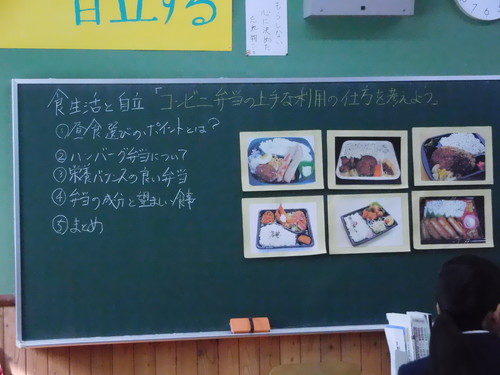 自立する
食生活と自立「コンビニ弁当の上手な利用の仕方を考えよう」
①昼食選びのポイントとは?
②ハンバーグ弁当について
③栄養バランスの良い弁当
④弁当の成分と望ましい食事
⑤まとめ